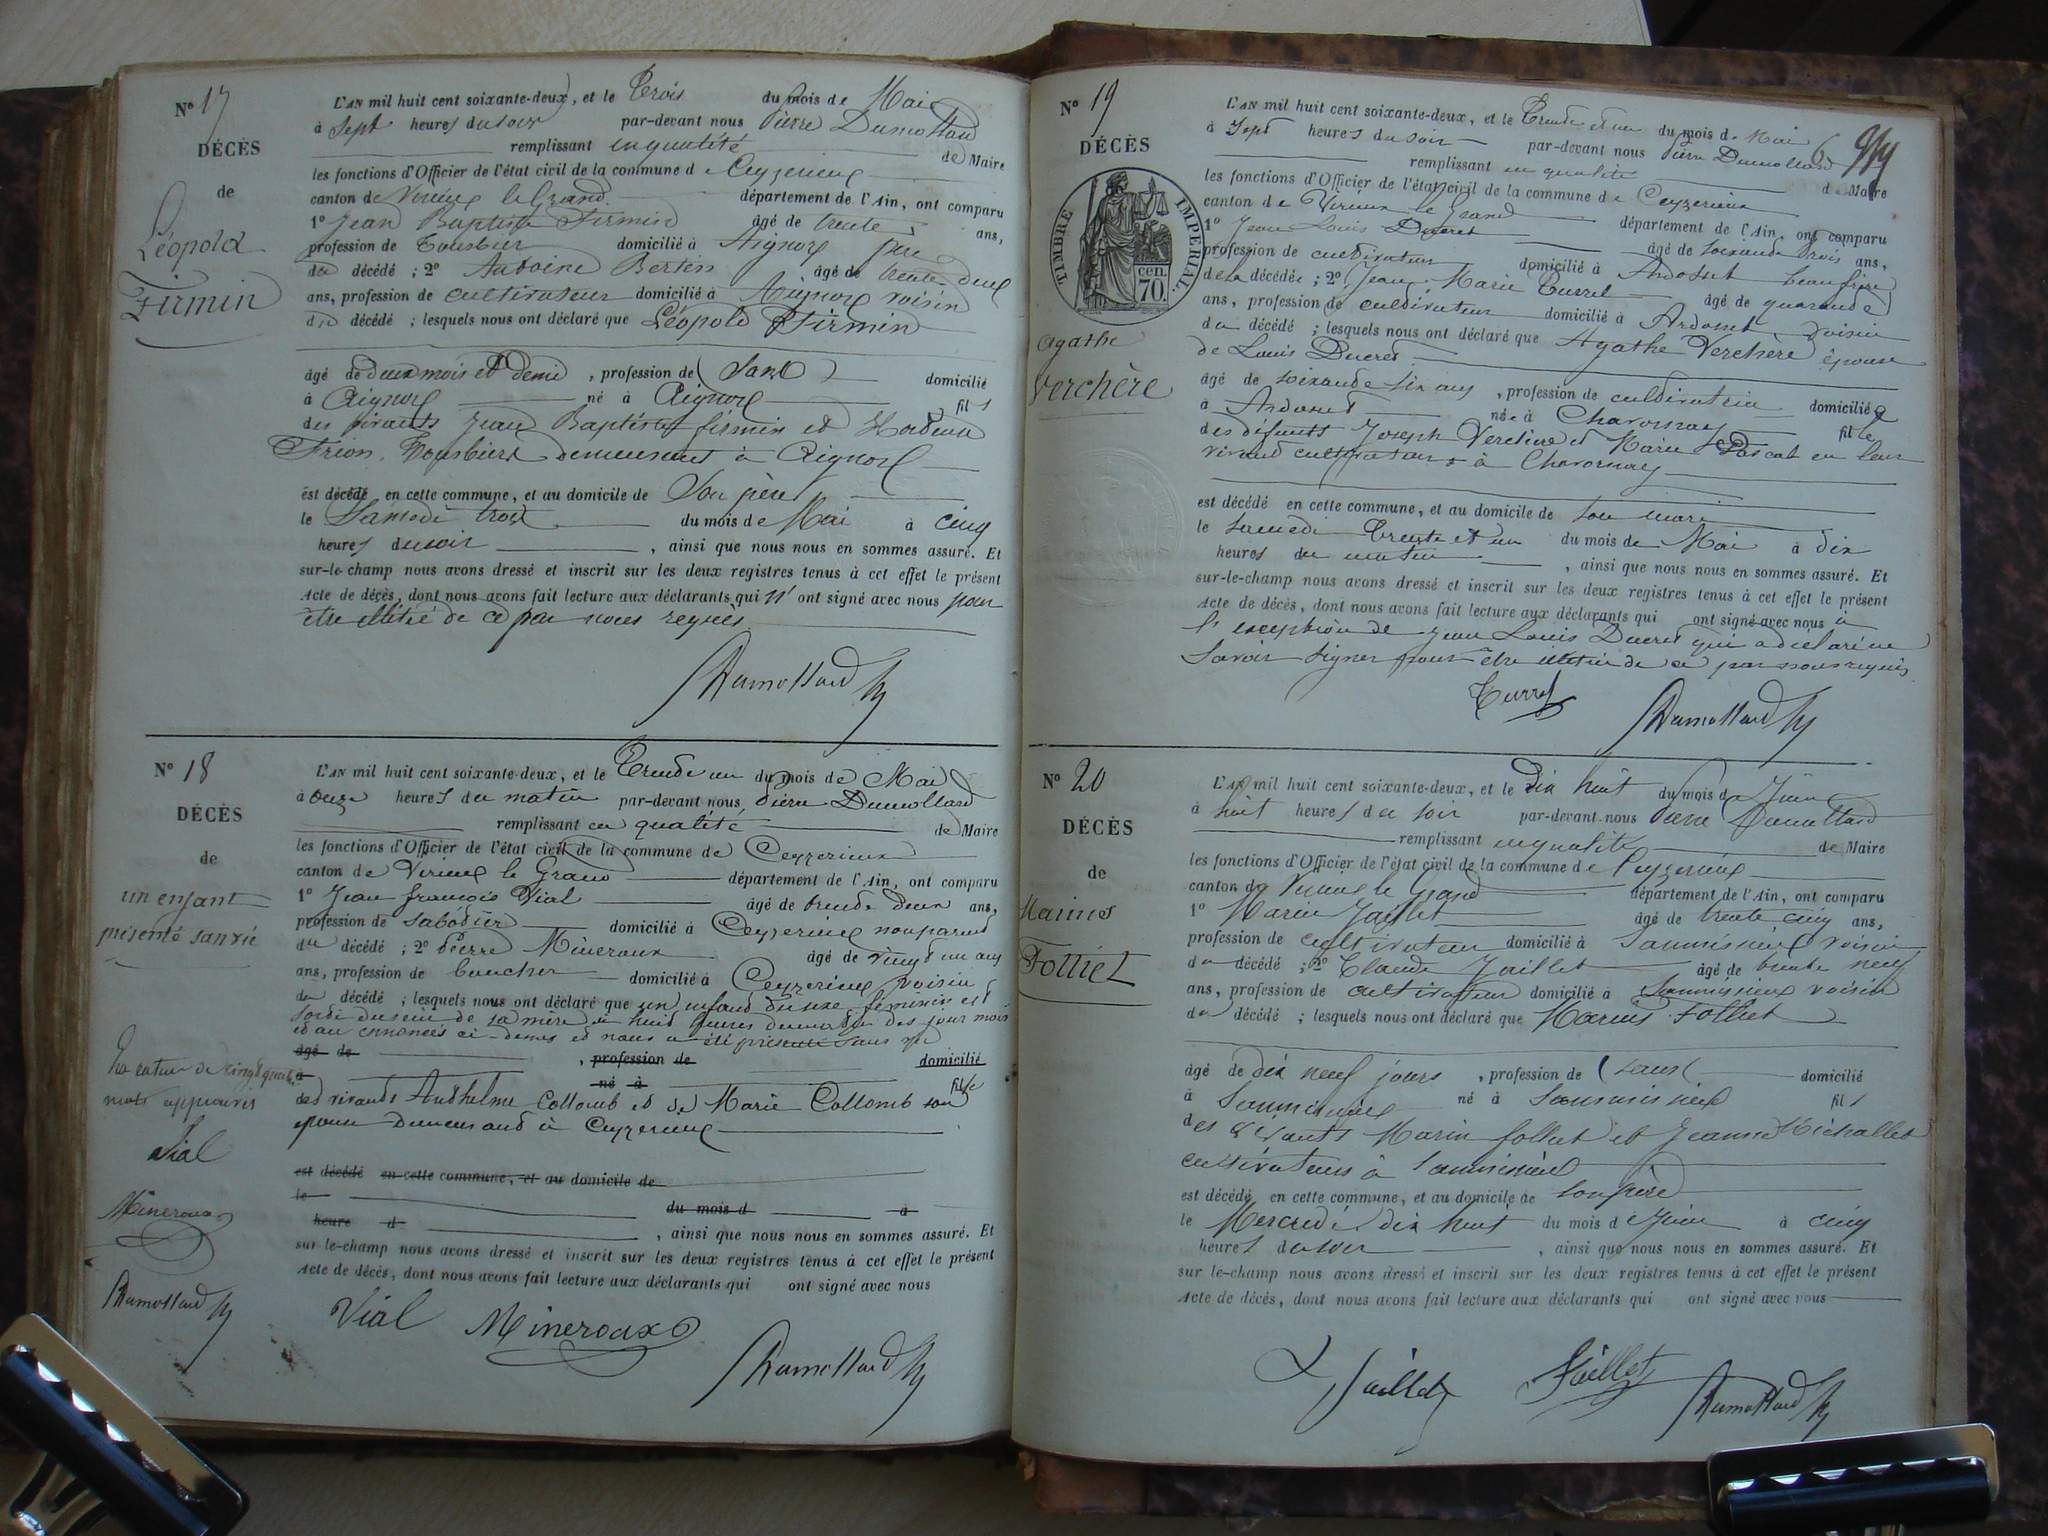 N° 17
DÉCÈS
de
Léopold
Firmin
L'AN mil huit cent soixante-deux, et le Trois du mois de Mai
à Sept heures du soir par-devant nous Pierre Dumollard
remplissant en qualité de Maire
les fonctions d'Officier de l'état civil de la commune de Ceyzerieux
canton de Virieux le Grand département de l'Ain, ont comparu
1° Jean Baptiste Firmin âgé de trente ans,
profession de domicilié à Aignoz père
du décédé ; 2° Antoine Bertin âgé de trente deux
ans, profession de cultivateur domicilié à Aignoz voisin
du décédé ; lesquels nous ont déclaré que Léopold Firmin
âgé de deux mois et demi , profession de (Sans) domicilié
à Aignoz né à Aignoz fils
des vivants Jean Baptiste firmin et
demeurant à Aignoz
est décédé en cette commune, et au domicile de Son père
le Samedi trois du mois de Mai à cinq
heures du soir , ainsi que nous nous en sommes assuré. Et
sur-le-champ nous avons dressé et inscrit sur les deux registres tenus à cet effet le présent
Acte de décès, dont nous avons fait lecture aux déclarants qui n' ont signé avec nous pour
être illitté de ce par nous requis
Dumollard
N° 18
DÉCÈS
de
un enfant
présenté sans vie
L'AN mil huit cent soixante-deux, et le Trente un du mois de Mai
à onze heures du matin par-devant nous Pierre Dumollard
remplissant en qualité de Maire
les fonctions d'Officier de l'état civil de la commune de Ceyzerieux
canton de Virieux le Grand département de l'Ain, ont comparu
1° Jean françois Vial âgé de trente deux ans,
profession de sabotier domicilié à Ceyzerieux non parent
du décédé ; 2° Pierre Mineroux âgé de vingt un ans
ans, profession de boucher domicilié à Ceyzerieux voisin
du décédé ; lesquels nous ont déclaré que un enfant du sexe féminin est
sorti du sein de sa mère à huit heures du matin des jour mois
et an énoncés ci-dessus et nous a été présenté sans vie
âgé de , profession de domicilié
à né à fille
des vivants Anthelme Collomb et de Marie Collomb son
épouse demeurant à Ceyzerieux
est décédé en cette commune, et au domicile de
le du mois d à
heure d , ainsi que nous nous en sommes assuré. Et
sur-le-champ nous avons dressé et inscrit sur les deux registres tenus à cet effet le présent
Acte de décès, dont nous avons fait lecture aux déclarants qui ont signé avec nous
mots approuvés
Vial
Mineroux
Dumollard
Vial Mineroux
Dumollard
N° 19
DÉCÈS
TIMBRE IMPERIAL
cen.
70.
Agathe
Verchère
L'AN mil huit cent soixante-deux, et le Trente et un du mois de Mai
à Sept heures du soir par-devant nous Pierre Dumollard
remplissant en qualité de Maire
les fonctions d'Officier de l'état civil de la commune de Ceyzerieux
canton de Virieux le Grand département de l'Ain, ont comparu
1° Jean Louis Ducret âgé de soixante trois ans,
profession de cultivateur domicilié à Ardosset beau frère
de la décédée ; 2° Jean Marie Turrel âgé de quarante
ans, profession de cultivateur domicilié à Ardosset voisin
du décédé ; lesquels nous ont déclaré que Agathe Verchère épouse
de Louis Ducret
âgé de soixante six ans , profession de cultivatrice domiciliée
à Ardosset née à Chavornay fille
des défunts Joseph Verchère et Marie Pascal en leur
vivant cultivateurs à Chavornay
est décédé en cette commune, et au domicile de son mari
le Samedi Trente et un du mois de Mai à dix
heures du matin , ainsi que nous nous en sommes assuré. Et
sur-le-champ nous avons dressé et inscrit sur les deux registres tenus à cet effet le présent
Acte de décès, dont nous avons fait lecture aux déclarants qui ont signé avec nous à
l'exception de Jean Louis Ducret qui a déclaré ne
savoir signer pour être illitté de ce par nous requis
Turrel
Dumollard
N° 20
DÉCÈS
de
Marius
Folliet
L'AN mil huit cent soixante-deux, et le Dix huit du mois de Juin
à huit heures du soir par-devant nous Pierre Dumollard
remplissant en qualité de Maire
les fonctions d'Officier de l'état civil de la commune de Ceyzerieux
canton de Virieux le Grand département de l'Ain, ont comparu
1° Marin Jaillet âgé de trente cinq ans,
profession de cultivateur domicilié à voisin
du décédé ; 2° Claude Jaillet âgé de trente neuf
ans, profession de cultivateur domicilié à voisin
du décédé ; lesquels nous ont déclaré que Marius Folliet
âgé de dix neuf jours , profession de (sans) domicilié
à né à fils
des vivants Marin folliet et Jeanne Michallet
cultivateurs à
est décédé en cette commune, et au domicile de son père
le Mercredi dix huit du mois de Juin à cinq
heures du soir , ainsi que nous nous en sommes assuré. Et
sur-le-champ nous avons dressé et inscrit sur les deux registres tenus à cet effet le présent
Acte de décès, dont nous avons fait lecture aux déclarants qui ont signé avec nous
Jaillet Jaillet
Dumollard